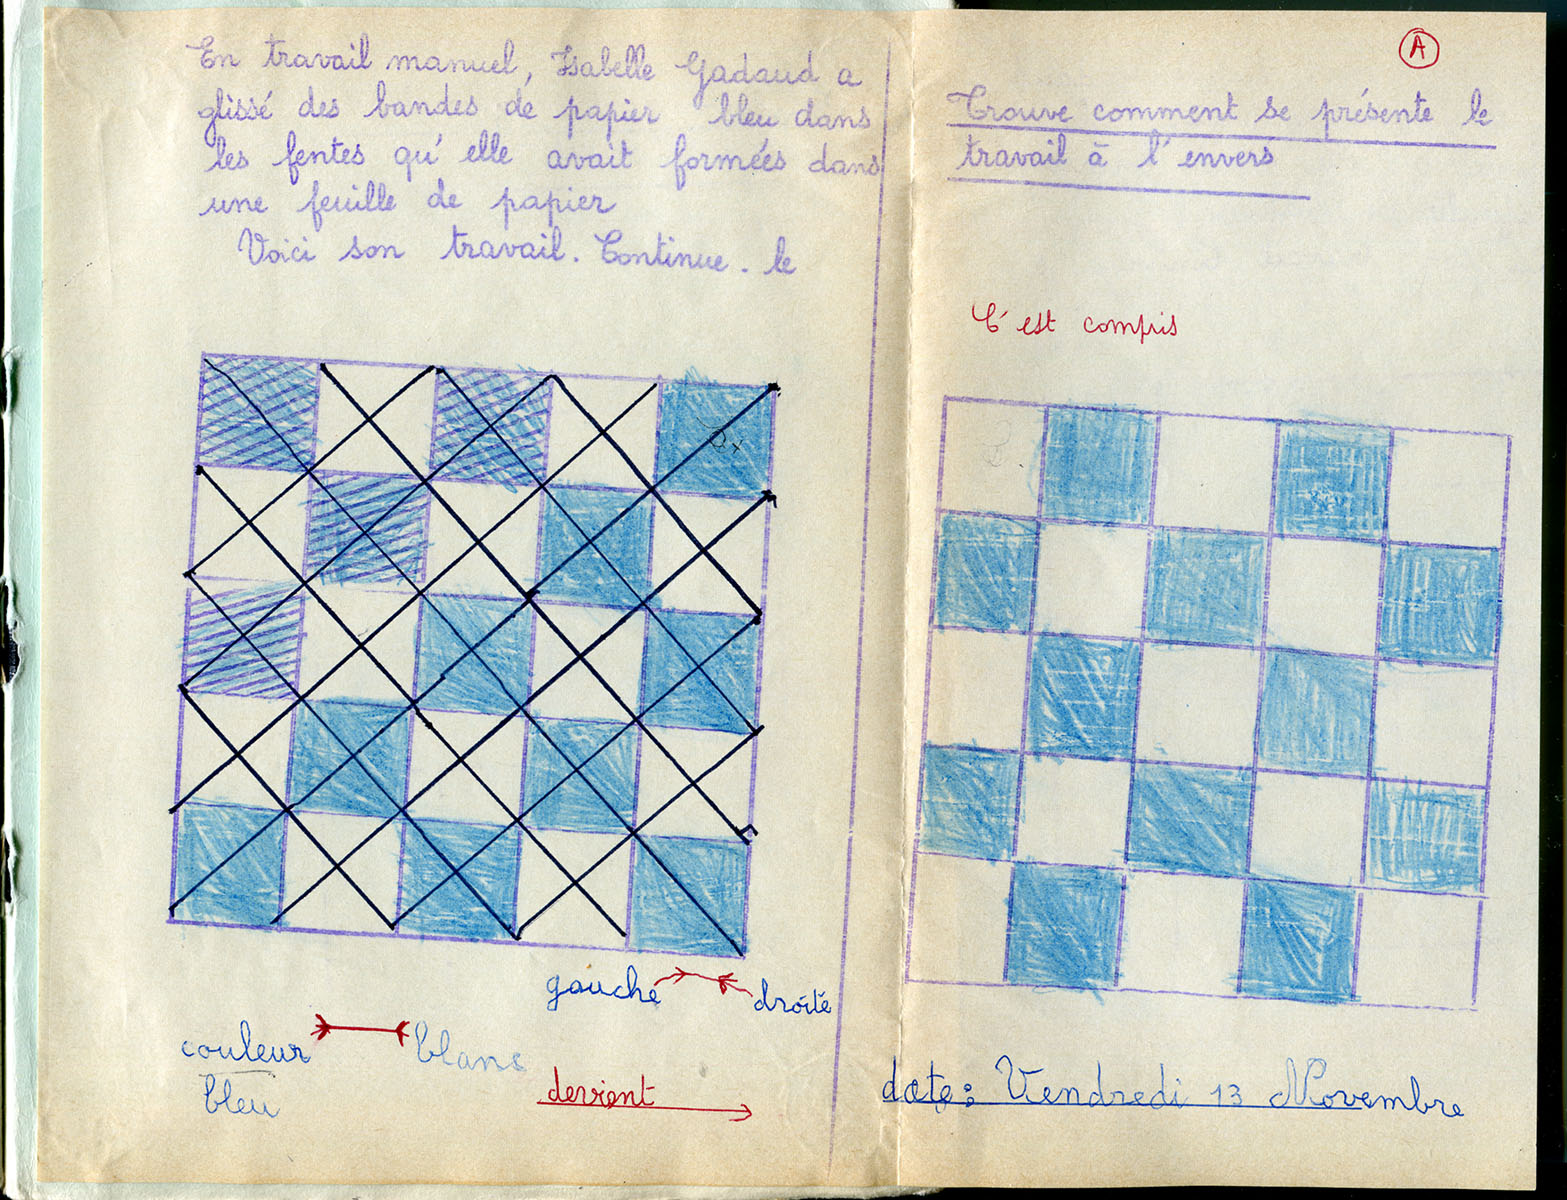 En travail manuel, Isabelle Gadaud a
glissé des bandes de papier bleu dans
les fentes qu'elle avait formées dans
une feuille de papier
Voici son travail. Continue-le
gauche droite
couleur blanc
bleu
devient
A
Trouve comment se présente le
travail à l'envers
C'est compris
date: Vendredi 13 Novembre